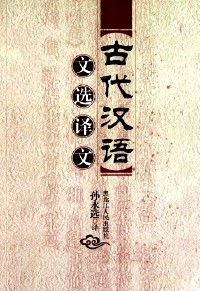 【古代汉语】
文选译文
孙永远 译
黑龙江人民出版社